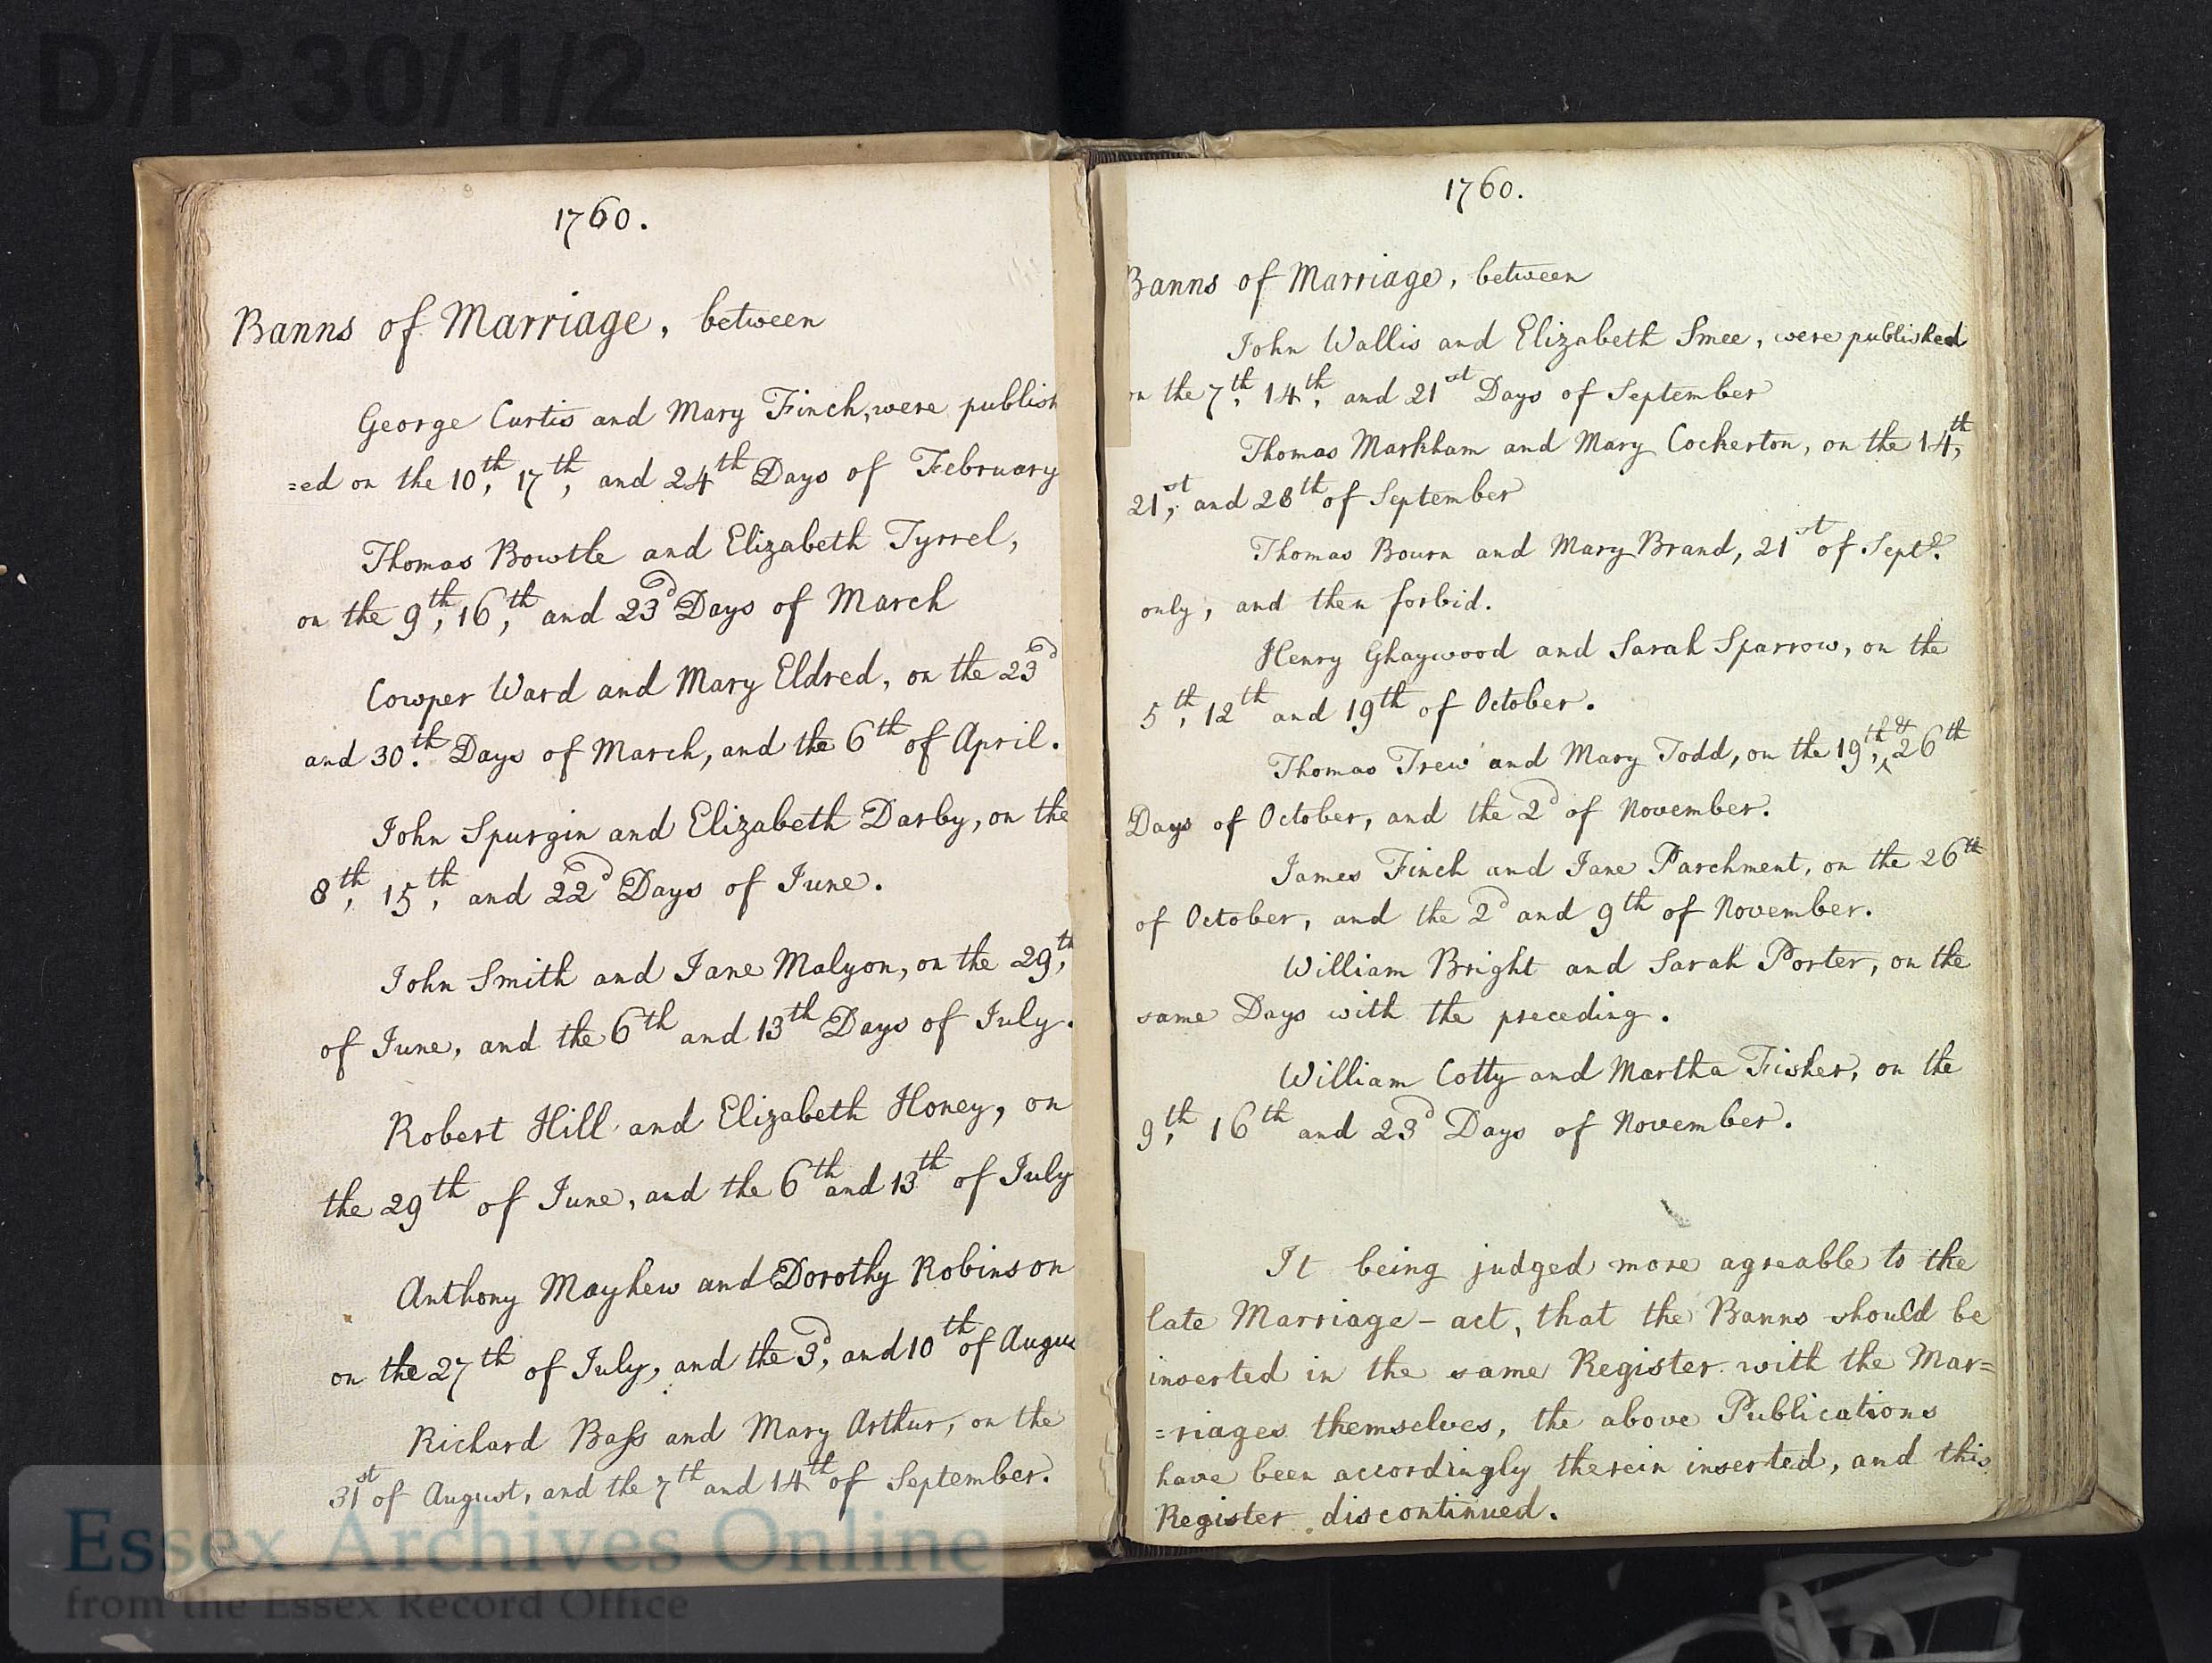 D/P 30/1/2
1760.
Banns of Marriage, between
George Curtis and Mary Finch, were publish
=ed on the 10th, 17th, and 24th Days of February
Thomas Bowtle and Elizabeth Tyrrel,
on the 9th, 16th, and 23d Days of March
Cowper Ward and Mary Eldred, on the 23d
and 30th. Days of March, and the 6th of April.
John Spurgin and Elizabeth Darby, on the
8th, 15th, and 22d Days of June.
John Smith and Jane Malyon, on the 29th,
of June, and the 6th and 13th Days of July.
Robert Hill and Elizabeth Honey, on
the 29th of June, and the 6th and 13th of July
Anthony Mayhew and Dorothy Robinson
on the 27th of July, and the 3d, and 10th of Augu
Richard Bass and Mary Arthur, on the
31st of August, and the 7th and 14th of September.
1760.
Banns of Marriage, between
John Wallis and Elizabeth Smee, were published
on the 7th, 14th, and 21st Days of September
Thomas Markham and Mary Cockerton, on the 14th,
21st, and 28th of September
Thomas Bourn and Mary Brand, 21st of Septr.
only, and then forbid.
Henry Ghaywood and Sarah Sparrow, on the
5th, 12th and 19th of October.
Thomas Trew and Mary Todd, on the 19th, & 26th
Days of October, and the 2d of November.
James Finch and Jane Parchment, on the 26th
of October, and the 2d and 9th of November.
William Bright and Sarah Porter, on the
same Days with the preceding.
William Cotty and Martha Fisher, on the
9th, 16th and 23d Days of November.
It being judged more agreable to the
late Marriage-act, that the Banns should be
inserted in the same Register with the Mar=
=riages themselves, the above Publications
have been accordingly therein inserted, and this
Register discontinued.
Essex Archives Online
from the Essex Record Office